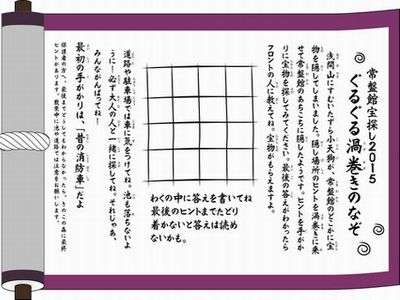 常盤館宝探し2015
ぐるぐる渦巻きのなぞ
浅間山にすむいたずら小天狗が、常盤館のどこかに宝
物を隠してしまいました。隠し場所のヒントを渦巻きに乗
せて常盤館のあちこちに隠したようです。ヒントを手がか
りに宝物を探してみてください。最後の答えがわかったら
フロントの人に教えてね。宝物がもらえますよ。
わくの中に答えを書いてね
最後のヒントまでたどり
着かないと答えは読め
ないかも。
道路や駐車場では車に気をつけてね。池も落ちないよ
うに！必ず大人の人と一緒に探してね。それじゃあ、
みんながんばってねー！
最初の手がかりは、「昔の消防車」だよ